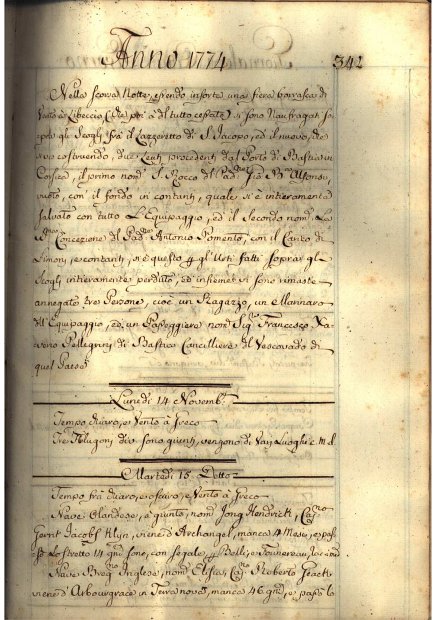 Anno 1774
342
Nella scorsa Notte, essendo insorta una fiera borrasca di
Vento à Libeccio, (che per à dì tutto cessata) si sono Naufragati so-
pra gli Scogli frà il Lazzeretto di S. Jacopo, ed il nuovo, che
si và costruendo, due Leuti procedenti dal Porto di Bastia in
Corsica, il primo nom.
S. Rocco del Pad.
vuoto, con il fondo in contanti, quale si è intieramente
Salvato con tutto L'Equipaggio, ed il Secondo nom.
Concezione del Pad. Antonio Fomento, con il Carico di
Limoni, e contanti, si è questo p gl'Urti fatti sopra gli
Scogli intieramente perduto, ed insieme si sono rimaste
annegate tre Persone, cioè un Ragazzo, un Marinaro
dell'Equipaggio, ed un Passeggiere nom. Sig. Francesco Xa-
verio Pellegrini di Bastia Cancelliere del Vescovado di
quel Paese
Lunedi 14 Novemb.
Tempo chiaro, e Vento à Greco
Tre giunti, vengono di Varj Luoghi c. m. d.
Martedi 15 Detto
Tempo frà chiaro, e oscuro, e Vento à Greco
Nave Olandese, à giunto, nom. Jong Hendrick, Cap.
Gerrit Jacobs Klijn, viene d'Archangel, manca 4 Mesi, e pas-
sò Lo Stretto 14 con Segale, Pelli, e
Nave Inglese, nom. Elisa, Cap. Roberto
viene d'Arbourgrace in Terra nova, manca 46 e passò lo